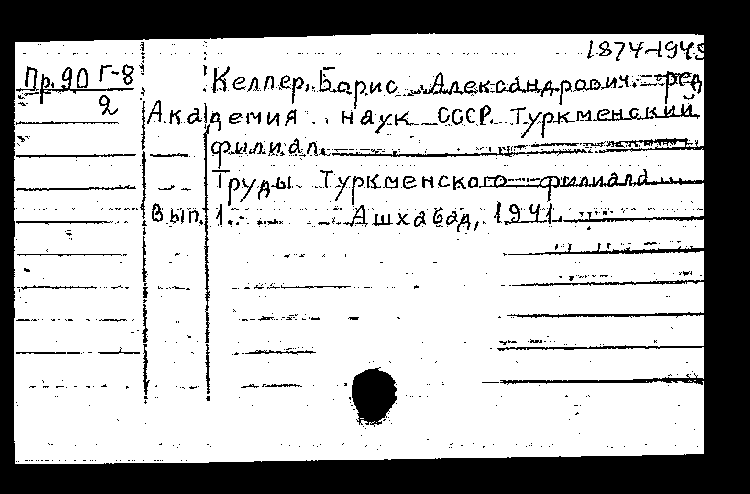 1874-1945
Пр. 90 Г-8 Келлер, Борис Александрович. ред
2 Академия наук СССР. Туркменский
филиал.
Труды Туркменского филиала...
Вып. 1. Ашхабад, 1941.